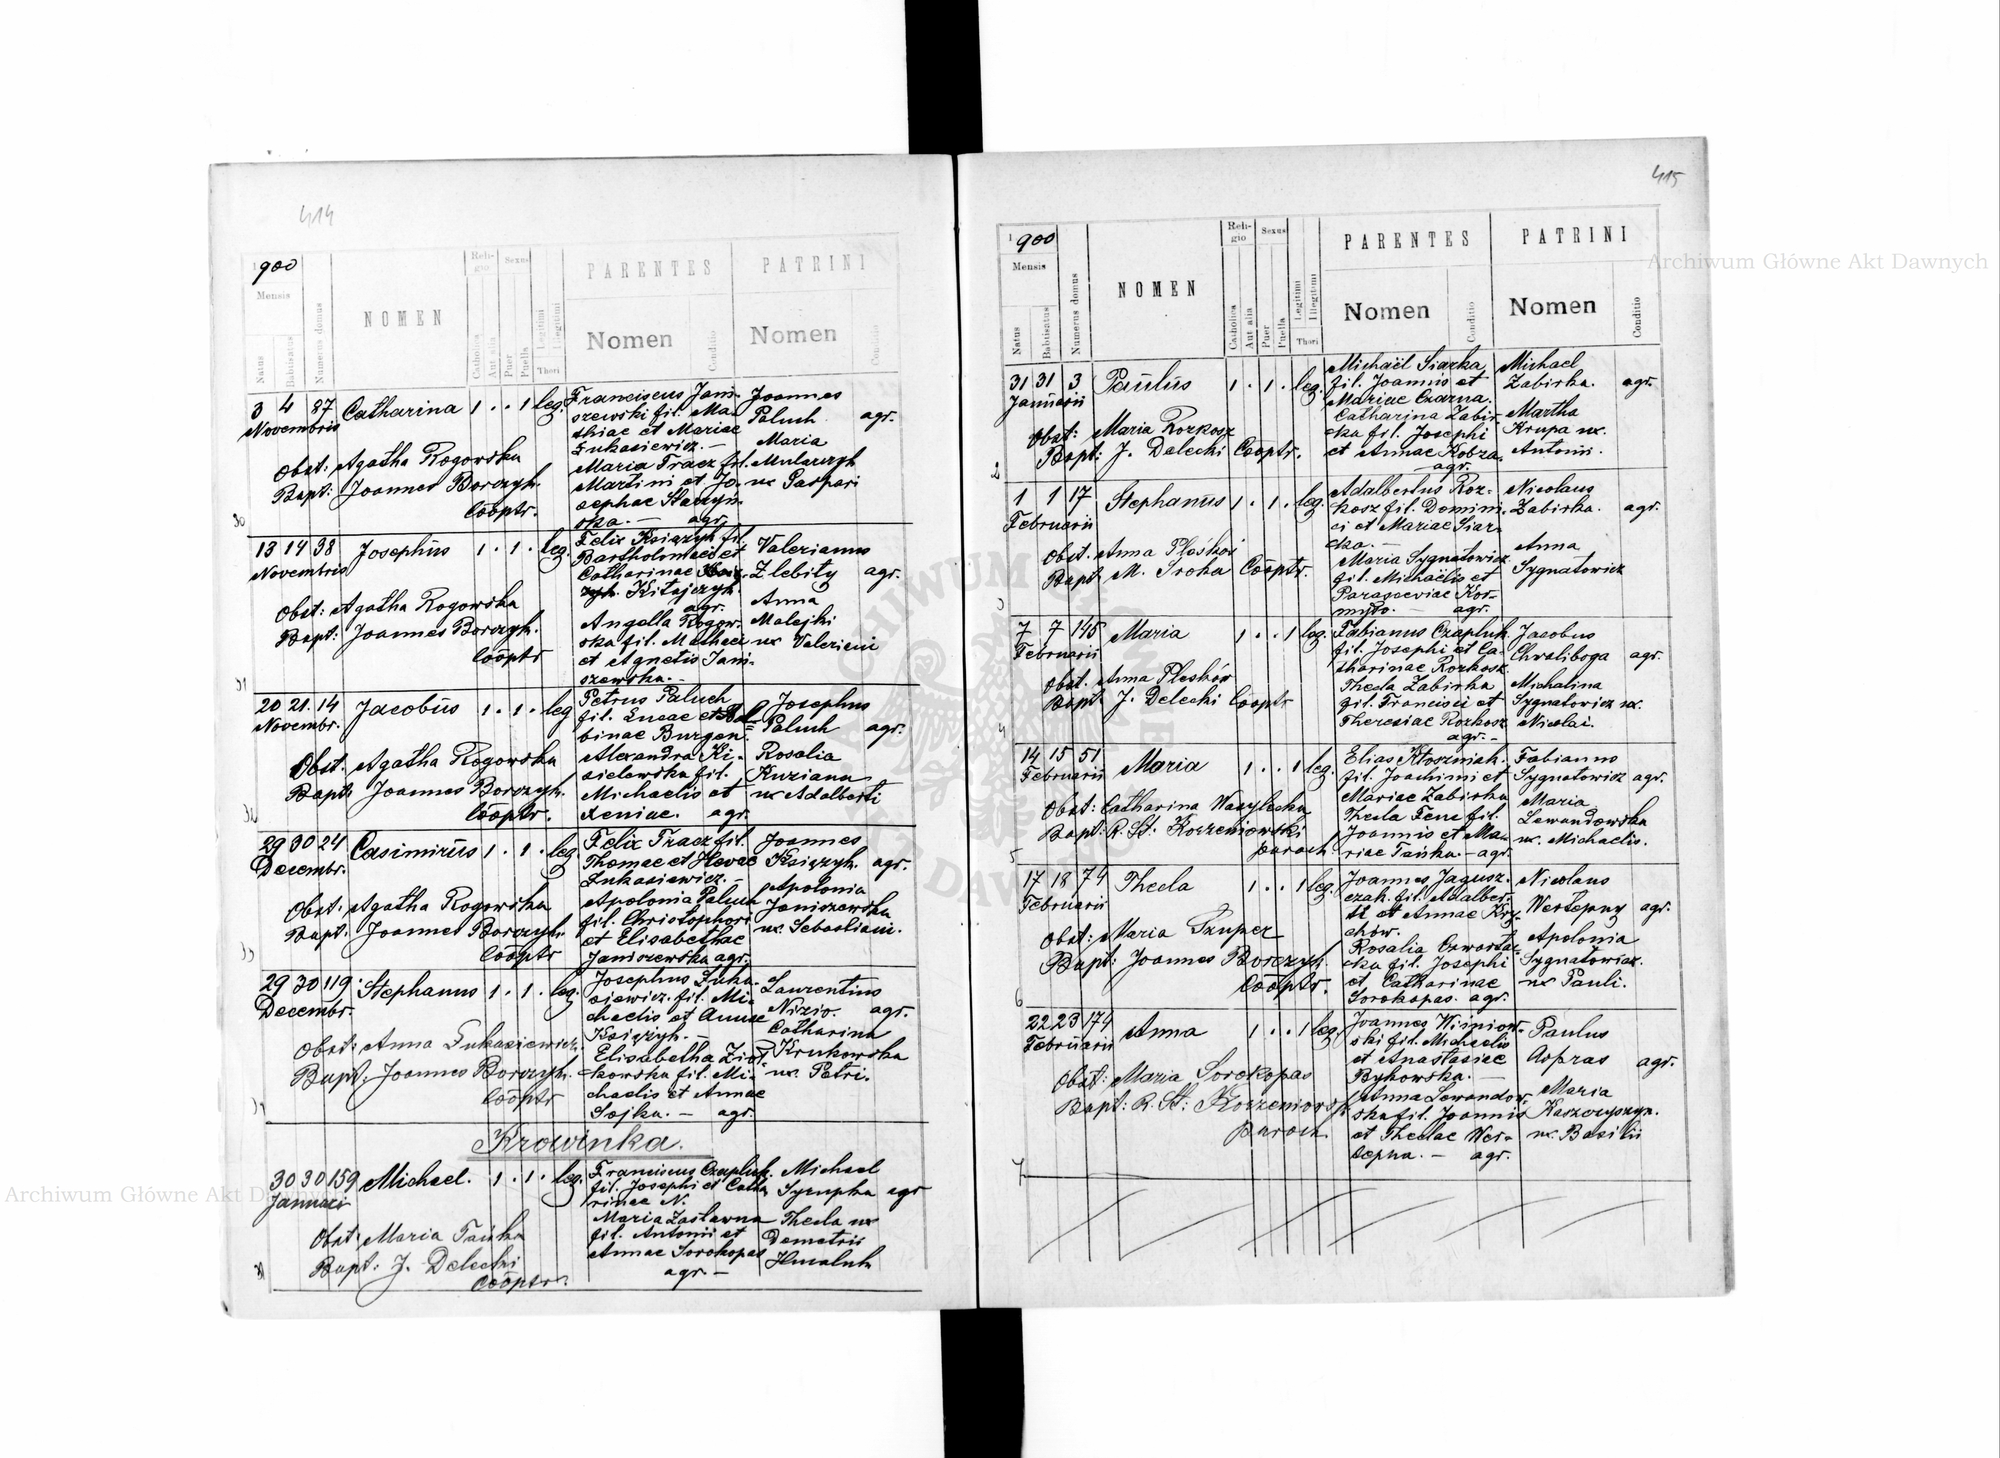 414
1900
Mensis
Natus
Babtisatus
Numerus domus
NOMEN
Reli-
gio
Catholica
Aut alia
Sexus
Puer
Puella
Legitimi
Illegitimi
Thori
PARENTES
Nomen
Conditio
PATRINI
Nomen
Conditio
3 4 87 Catharina 1 . . 1 leg.
Novembris
Obst: Agatha Rogowska
Bapt: Joannes Borczyk.
Cooptr.
Franciscus Jani-
szewski fil. Ma-
thiae et Mariae
Łukasiewicz. —
Maria Tracz fil.
Martini et Jo-
sephae Staczyn-
ska. — agr.
Joannes
Paluch agr.
Maria
Mularczyk
ux Caspari
30
13 14 38 Josephus 1 . 1 . leg.
Novembris
Obst: Agatha Rogowska
Bapt: Joannes Borczyk.
Cooptr
Felix Książyk fil.
Bartholomaei et
Catharinae
Kitajczyk.
agr.
Angella Rogow-
ska fil. Mathaei
et Agnetis Jani-
szewska. -
Valerianus
Zlebity agr.
Anna
Malejki
ux Valeriani
31
20 21. 14 Jacobus 1 . 1 . leg
Novembr.
Obst. Agatha Rogowska
Bapt: Joannes Borczyk.
Cooptr.
Petrus Paluch
fil. Lucae et Al-
binae Burgen.
Alexandra Ki-
sielewska fil.
Michaelis et
Xeniae. agr.
Josephus
Paluch agr.
Rosalia
Kuziana
ux Adalberti
32
29 30 24 Casimirus 1 . 1 . leg.
Decembr.
Obst. Agatha Rogowska
Bapt: Joannes Borczyk.
Cooptr
Felix Tracz fil.
Thomae et Hevae
Łukasiewicz. —
Apolonia Paluch
fil. Christophori
et Elisabethae
Janiszewska agr.
Joannes
Książyk. agr.
Apolonia
Janiszewska
ux. Sebastiani.
33
29 30 119 Stephanus 1 . 1 . leg.
Decembr.
Obst: Anna Łukasiewicz.
Bapt: Joannes Borczyk.
Cooptr
Josephus Łuka-
siewicz. fil. Mi-
chaelis et Annae
Książyk. —
Elisabetha Ziół-
kowska fil. Mi-
chaelis et Annae
Sojka. — agr.
Laurentius
Nizio. agr.
Catharina
Krukowska
ux. Petri.
Krowinka.
30 30 159 Michael. 1 . 1 . leg.
Januarii
Obst: Maria Tańka
Bapt: J. Delecki
Cooptr.
Franciscus Czapluk.
fil. Josephi et Catha
rinae N.
Maria Zastawna
fil. Antonii et
Annae Sorokopas
agr. —
Michael
Sysupka agr
Thecla ux
Demetrii
Hucaluk
415
1900
Mensis
Natus
Babtisatus
Numerus domus
NOMEN
Reli-
gio
Catholica
Aut alia
Sexus
Puer
Puella
Legitimi
Illegitimi
Thori
PARENTES
Nomen
Conditio
PATRINI
Nomen
Conditio
31 31 3 Paulus 1 . 1 . leg.
Januarii
Obst: Maria Rozkosz
Bapt: J. Delecki Cooptr.
Michaël Siarka
fil. Joannis et
Mariae Czarna.
Catharina Zabir-
cka fil. Josephi
et Annae Kobza.
agr.
Michael
Zabirka. agr.
Martha
Krupa ux.
Antonii.
2
1 1 17 Stephanus 1 . 1 . leg.
Februarii
Obst. Anna Plesków
Bapt. M. Sroka Cooptr.
Adalbertus Roz-
kosz fil. Domini-
ci et Mariae Siar-
cka. —
Maria Sygnatowicz
fil. Michaëlis et
Parasceviae Kor-
mydo. — agr.
Nicolaus
Zabirka. agr.
Anna
Sygnatowicz
3
7 7 145 Maria 1 . . 1 leg.
Februarii
Obst. Anna Plesków
Bapt. J. Delecki Cooptr
Fabianus Czapluk.
fil. Josephi et Ca-
tharinae Rozkosz
Thecla Zabirka
fil. Francisci et
Theresiae Rozkosz
agr. -
Jacobus
Chwaliboga agr.
Michalina
Sygnatowicz ux.
Nicolai.
4
14 15 51 Maria 1 . . 1 leg.
Februarii
Obst: Catharina Wasylecka
Bapt: R. St: Korzeniowski
paroch.
Elias Kłoszniak.
fil. Joachimi et
Mariae Zabirka
Thecla Fene fil.
Joannis et Ma-
riae Tańka. — agr.
Fabianus
Sygnatowicz agr.
Maria
Lewandowska
ux. Michaelis.
5
17 18 74 Thecla 1 . . 1 leg.
Februarii
Obst: Maria Szuper
Bapt: Joannes Borczyk.
Cooptr.
Joannes Jagusz-
czak. fil. Adalber-
ti et Annae Kry-
chów.
Rosalia Czwartac-
cka fil. Josephi
et Catharinae
Sorokopas. agr.
Nicolaus
Wersepny agr.
Apolonia
Sygnatowicz.
ux Pauli.
6
22 23 174 Anna 1 . . 1 leg.
Februarii
Obst: Maria Sorokopas
Bapt: R. St: Korzeniowski
paroch.
Joannes Wiśniow-
ski fil. Michaelis
et Anastasiae
Bykowska. —
Anna Lewandow-
ska fil. Joannis
et Theclae Wer-
sepna. — agr.
Paulus
Aspras agr.
Maria
Kaszczyszyn.
ux. Basilii
7
Archiwum Główne Akt Dawnych
Archiwum Główne Akt Dawnych
ARCHIWUM GŁÓWNE AKT DAWNYCH